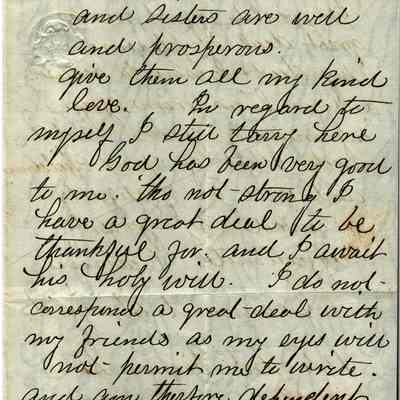 and sisters are well
and prosperous.
give them all my kind
love. In regard to
myself I still tarry here
God has been very good
to me. tho not strong I
have a great deal to be
thankful for. and I await
his holy will. I do not
correspond a great deal with
my friends as my eyes will
not permit me to write.
and am therfore dependent